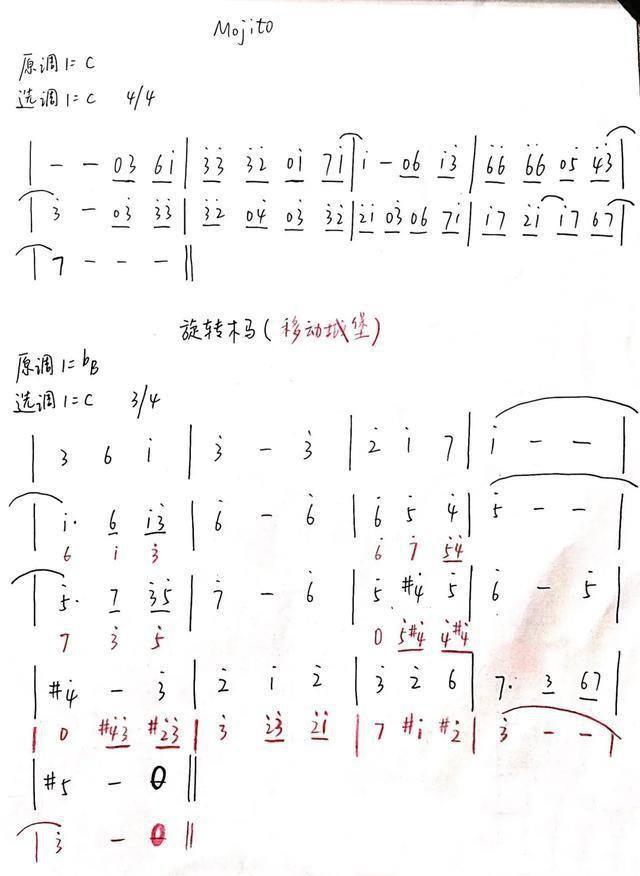 Mojito
原调1=C
选调1=C 4/4
| - - 03̇ 61̇ | 3̇3̇ 3̇2̇ 01̇ 71̇ | 1̇ - 06 1̇3̇ | 6̇6̇ 6̇6̇ 05̇ 4̇3̇ |
| 3̇ - 03̇ 3̇3̇ | 3̇2̇ 04̇ 03̇ 3̇2̇ | 2̇1̇ 03̇ 06 71̇ | 1̇7 2̇1̇ 1̇7 67 |
| 7 - - - ||
旋转木马(移动城堡)
原调1=bB
选调1=C 3/4
| 3 6 1̇ | 3̇ - 3̇ | 2̇ 1̇ 7 | 1̇ - - |
| 1̇· 6 1̇3̇ | 6̇ - 6̇ | 6̇ 5̇ 4̇ | 5̇ - - |
6 1̇ 3̇ 6̇ 7̇ 5̇4̇
| 5̇· 7 3̇5̇ | 7̇ - 6̇ | 5̇ #4̇ 5̇ | 6̇ - 5̇ |
7 3̇ 5̇ 0 5̇#4̇ 4̇#4̇
| #4̇ - 3̇ | 2̇ 1̇ 2̇ | 3̇ 2̇ 6 | 7· 3 67 |
| 0 #4̇3̇ #2̇3̇ | 3̇ 2̇3̇ 2̇1̇ | 7 #1̇ #2̇ | 3̇ - - |
| #5 - 0 ||
| 3̇ - 0 ||